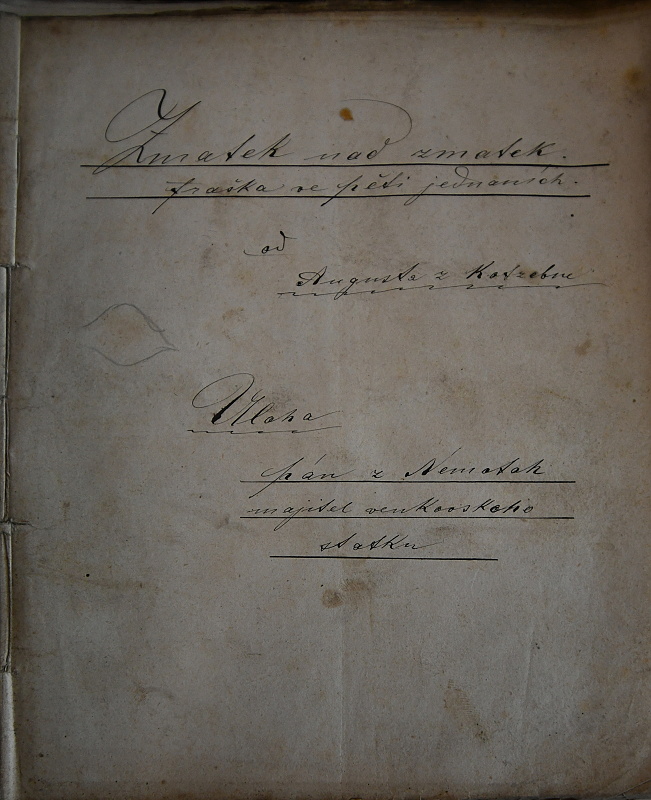 Zmatek nad zmatek.
fraška ve pěti jednaních.
od
Augusta z Kotzebue
Úloha
pán z Nemotah
majitel venkovského
statku